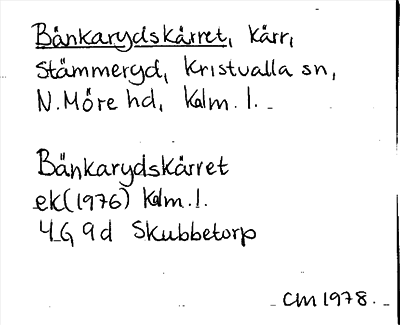 Bänkarydskärret, kärr,
Stämmeryd, Kristvalla sn,
N. Möre hd, Kalm. l.
Bänkarydskärret
ek (1976) Kalm. l.
4G 9d Skubbetorp
CM 1978.